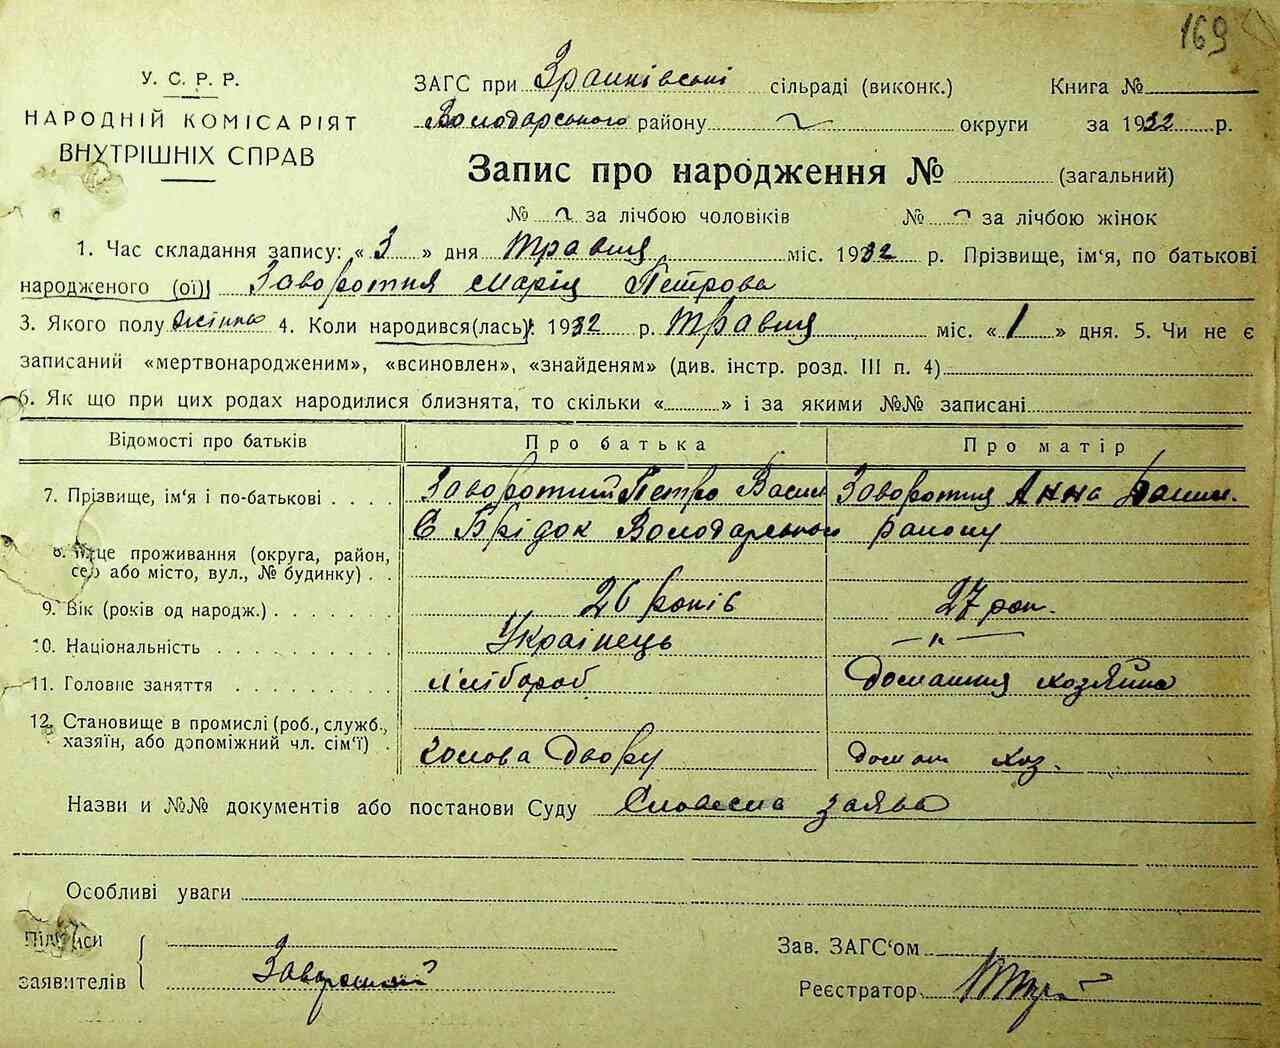 169
У. С. Р. Р.
НАРОДНІЙ КОМІСАРІЯТ
ВНУТРІШНІХ СПРАВ
ЗАГС при Зраиківські сільраді (виконк.) Книга №
Володарського району округи за 1932 р.
Запис про народження № (загальний)
№ за лічбою чоловіків № за лічбою жінок
1. Час складання запису: « 3 » дня травня міс. 1932 р. Прізвище, ім'я, по батькові
народженого (ої) Заворотня Марія Петрова
3. Якого полу жінка 4. Коли народився(лась): 1932 р. травня міс. « 1 » дня. 5. Чи не є
записаний «мертвонародженим», «всиновлен», «знайденям» (див. інстр. розд. III п. 4)
6. Як що при цих родах народилися близнята, то скільки « » і за якими №№ записані
Відомості про батьків Про батька Про матір
7. Прізвище, ім'я і по-батькові . . . . Заворотний Петро Васил Заворотня Анна
8. Місце проживання (округа, район, село або місто, вул., № будинку) . . С Брідок Володарського району
9. Вік (років од народж.) . . . . . . . 26 років 27 рок.
10. Національність . . . . . . . . . . Українець — " —
11. Головне заняття . . . . . . . . . хлібороб Домашня хозяйка
12. Становище в промислі (роб., служб., хазяїн, або допоміжний чл. сім'ї) . голова двору домаш хоз.
Назви и №№ документів або постанови Суду Словесна заява
Особливі уваги
Підписи
заявителів Заворотний
Зав. ЗАГС'ом
Реєстратор